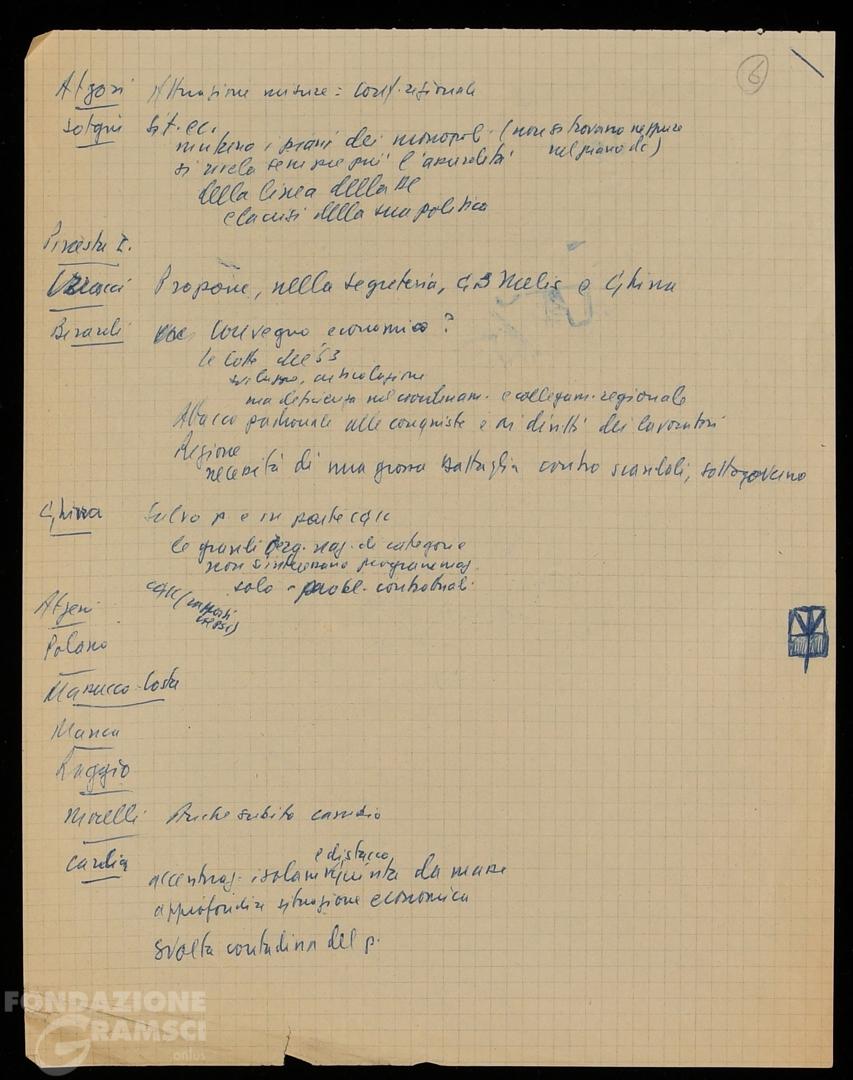 6
Atzeni Attuazione misure = conf. regionale
Sotgiu Sit. ec.
mutano i piani dei monopoli (non si trovano neppure
nel piano dc)
si rivela sempre più l'assurdità
della linea della DC
e la crisi della sua politica
Pirastu I.
Propone, nella segreteria, GB Melis e Ghirra
Berardi Convegno economico?
le lotte del '53
sviluppo, articolazione
ma deficienza nel coordinam. e collegam. regionale
Attacco padronale alle conquiste e ai diritti dei lavoratori
Regione
necessità di una grossa battaglia contro scandali, sottogoverno
Ghirra Salvo p. e in parte CGIL
le grandi org. naz. di categoria
non si interessano programmaz.
solo probl. contrattuali
CGIL (rapporti
Atzeni
Polano
Marucco-Costa
Manca
Raggio
Morelli Anche subito cambio
Cardia accentraz. isolam. e distacco Giunta da masse
approfondire situazione economica
svolta contadina del p.
FONDAZIONE
GRAMSCI
onlus